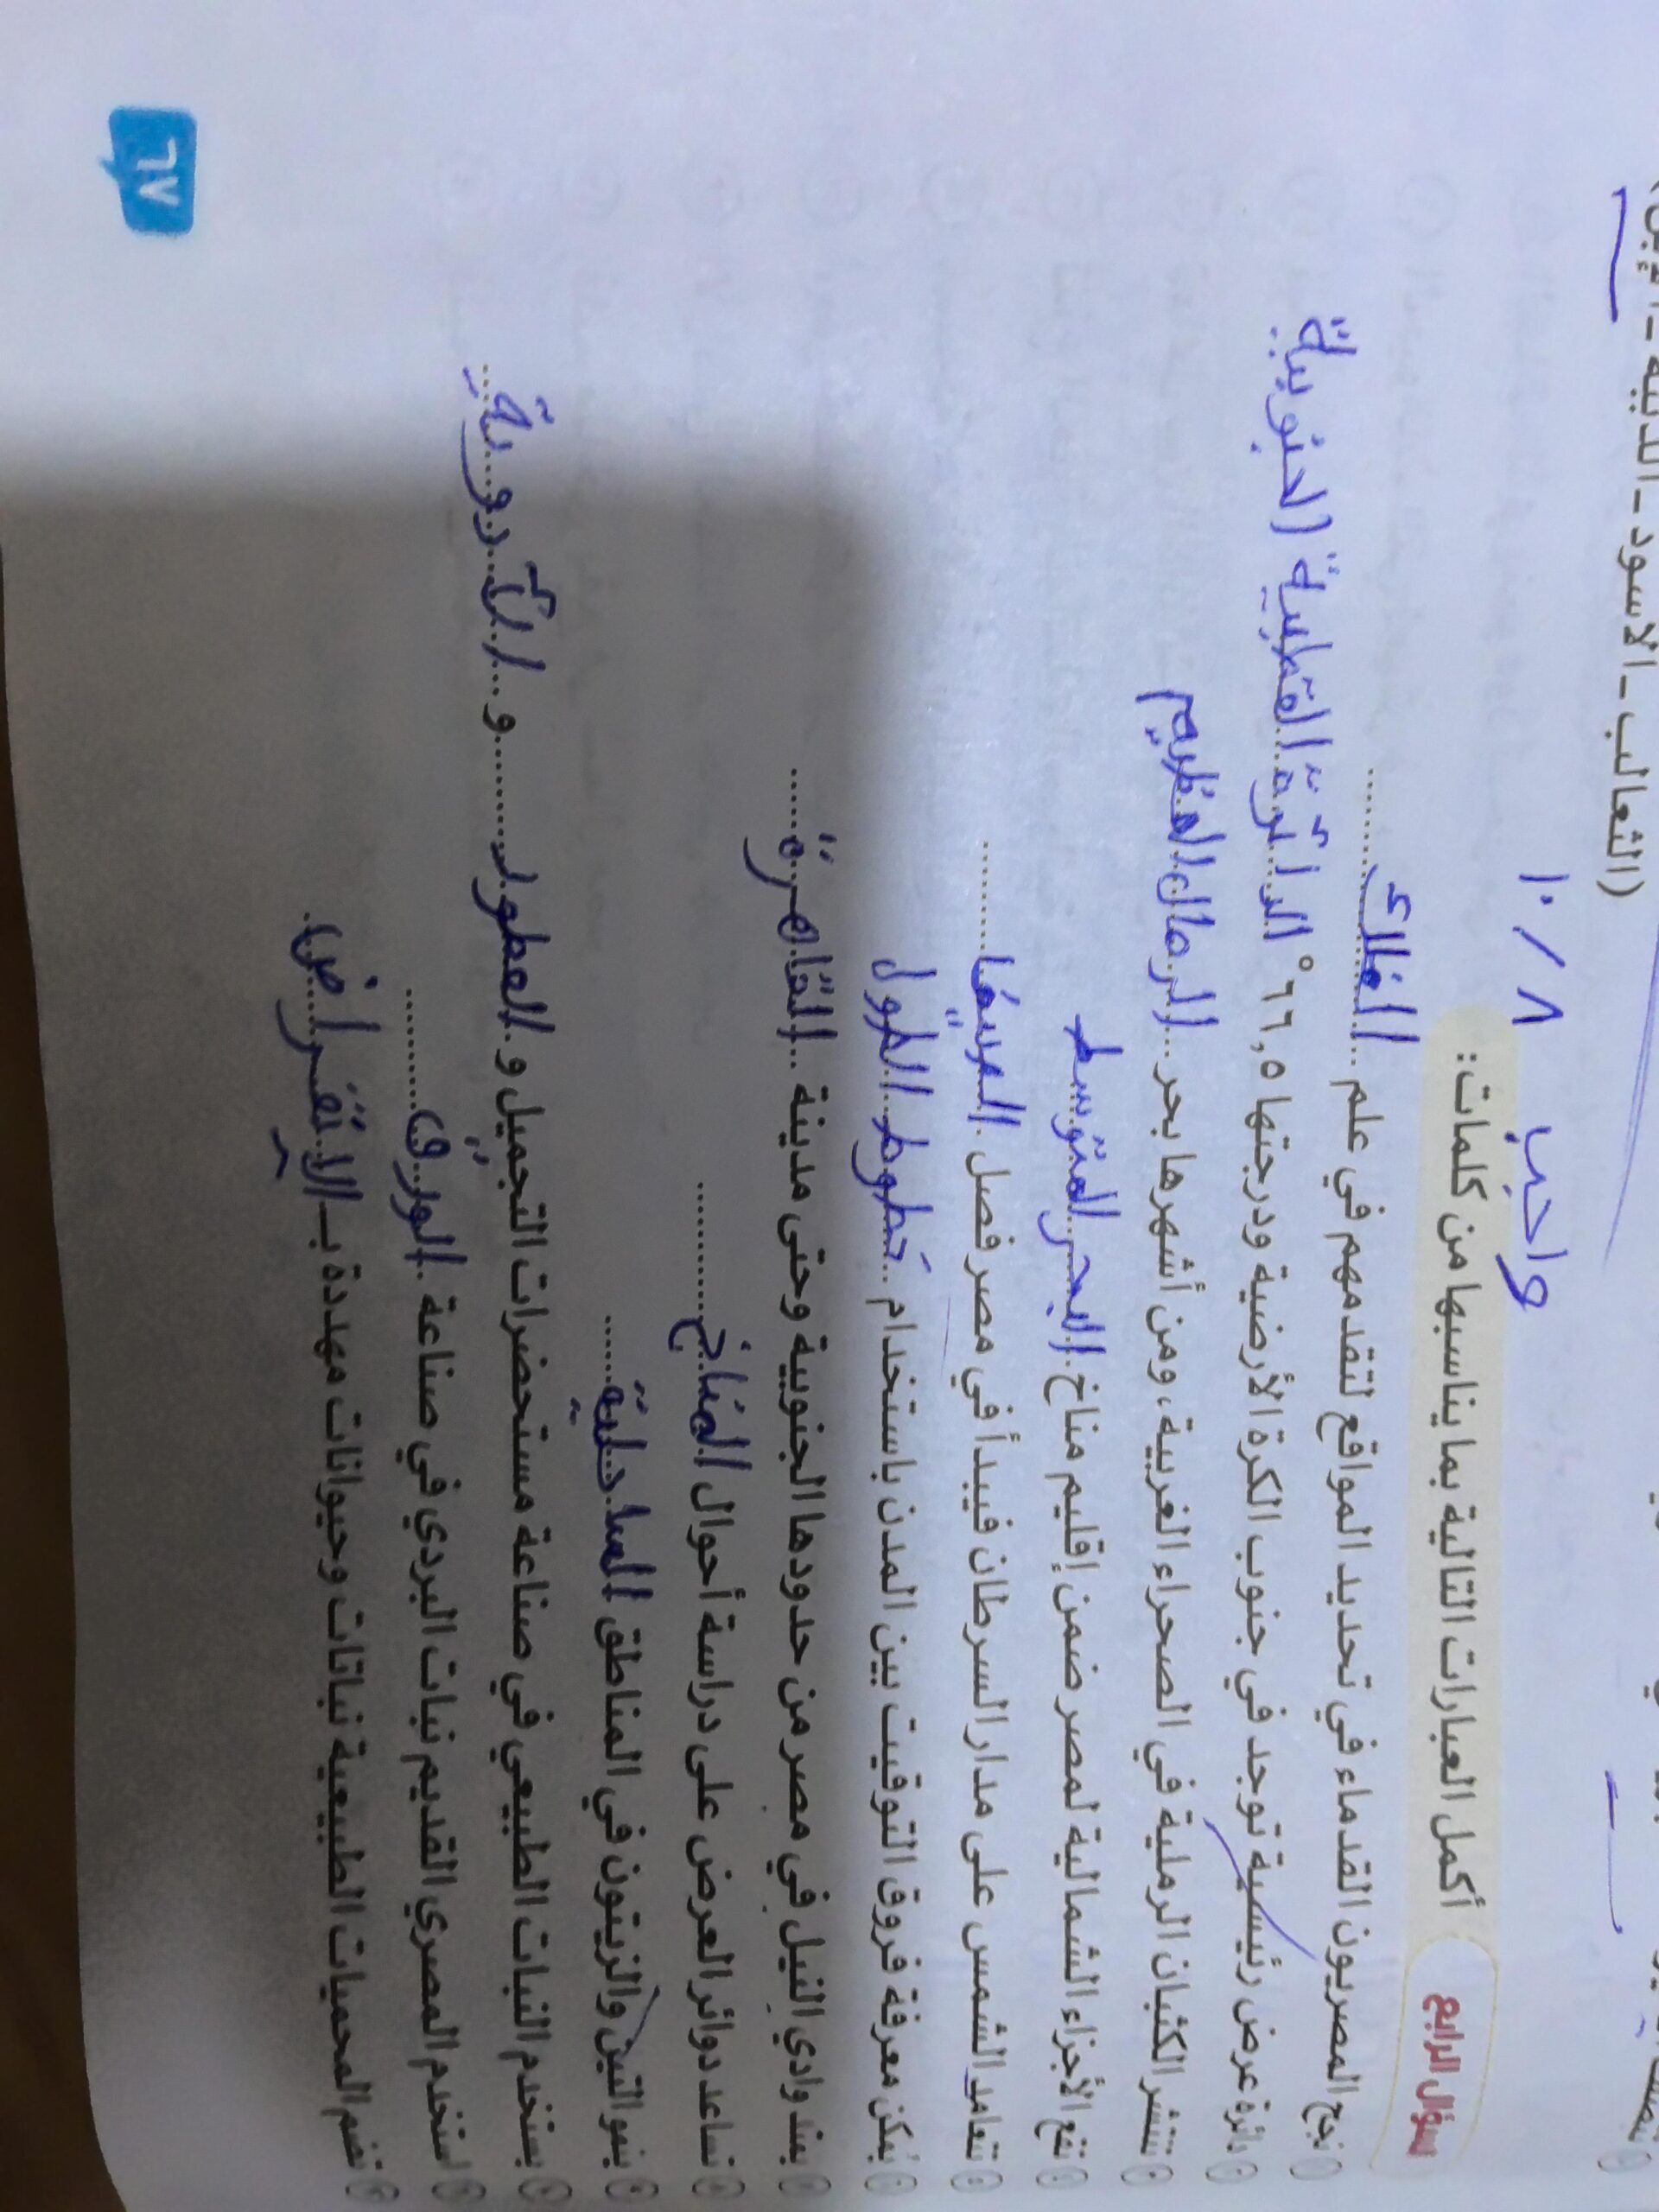 (الثعالب - الأسود - الدببة -
واجب ٨ / ١٠
السؤال الرابع أكمل العبارات التالية بما يناسبها من كلمات:
نجح المصريون القدماء في تحديد المواقع لتقدمهم في علم الفلك
دائرة عرض رئيسية توجد في جنوب الكرة الأرضية ودرجتها ٦٦,٥° الدائرة القطبية الجنوبية
تنتشر الكثبان الرملية في الصحراء الغربية، ومن أشهرها بحر الرمال العظيم
تقع الأجزاء الشمالية لمصر ضمن إقليم مناخ البحر المتوسط
تتعامد الشمس على مدار السرطان فيبدأ في مصر فصل الصيف
يُمكن معرفة فروق التوقيت بين المدن باستخدام خطوط الطول
يمتد وادي النيل في مصر من حدودها الجنوبية وحتى مدينة القاهرة
تساعد دوائر العرض على دراسة أحوال المناخ
ينمو التين والزيتون في المناطق الساحلية
يستخدم النبات الطبيعي في صناعة مستحضرات التجميل و العطور و الأدوية
استخدم المصري القديم نبات البردي في صناعة الورق
تضم المحميات الطبيعية نباتات وحيوانات مهددة بـ الانقراض
٦٧